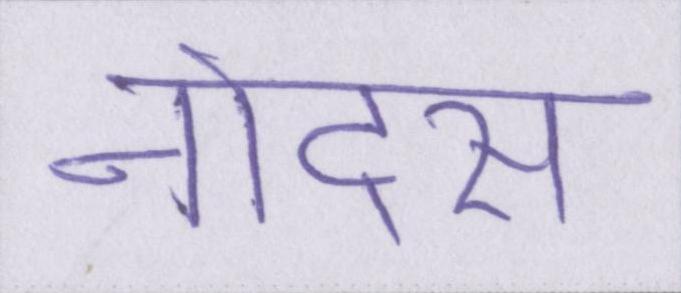 नोदस